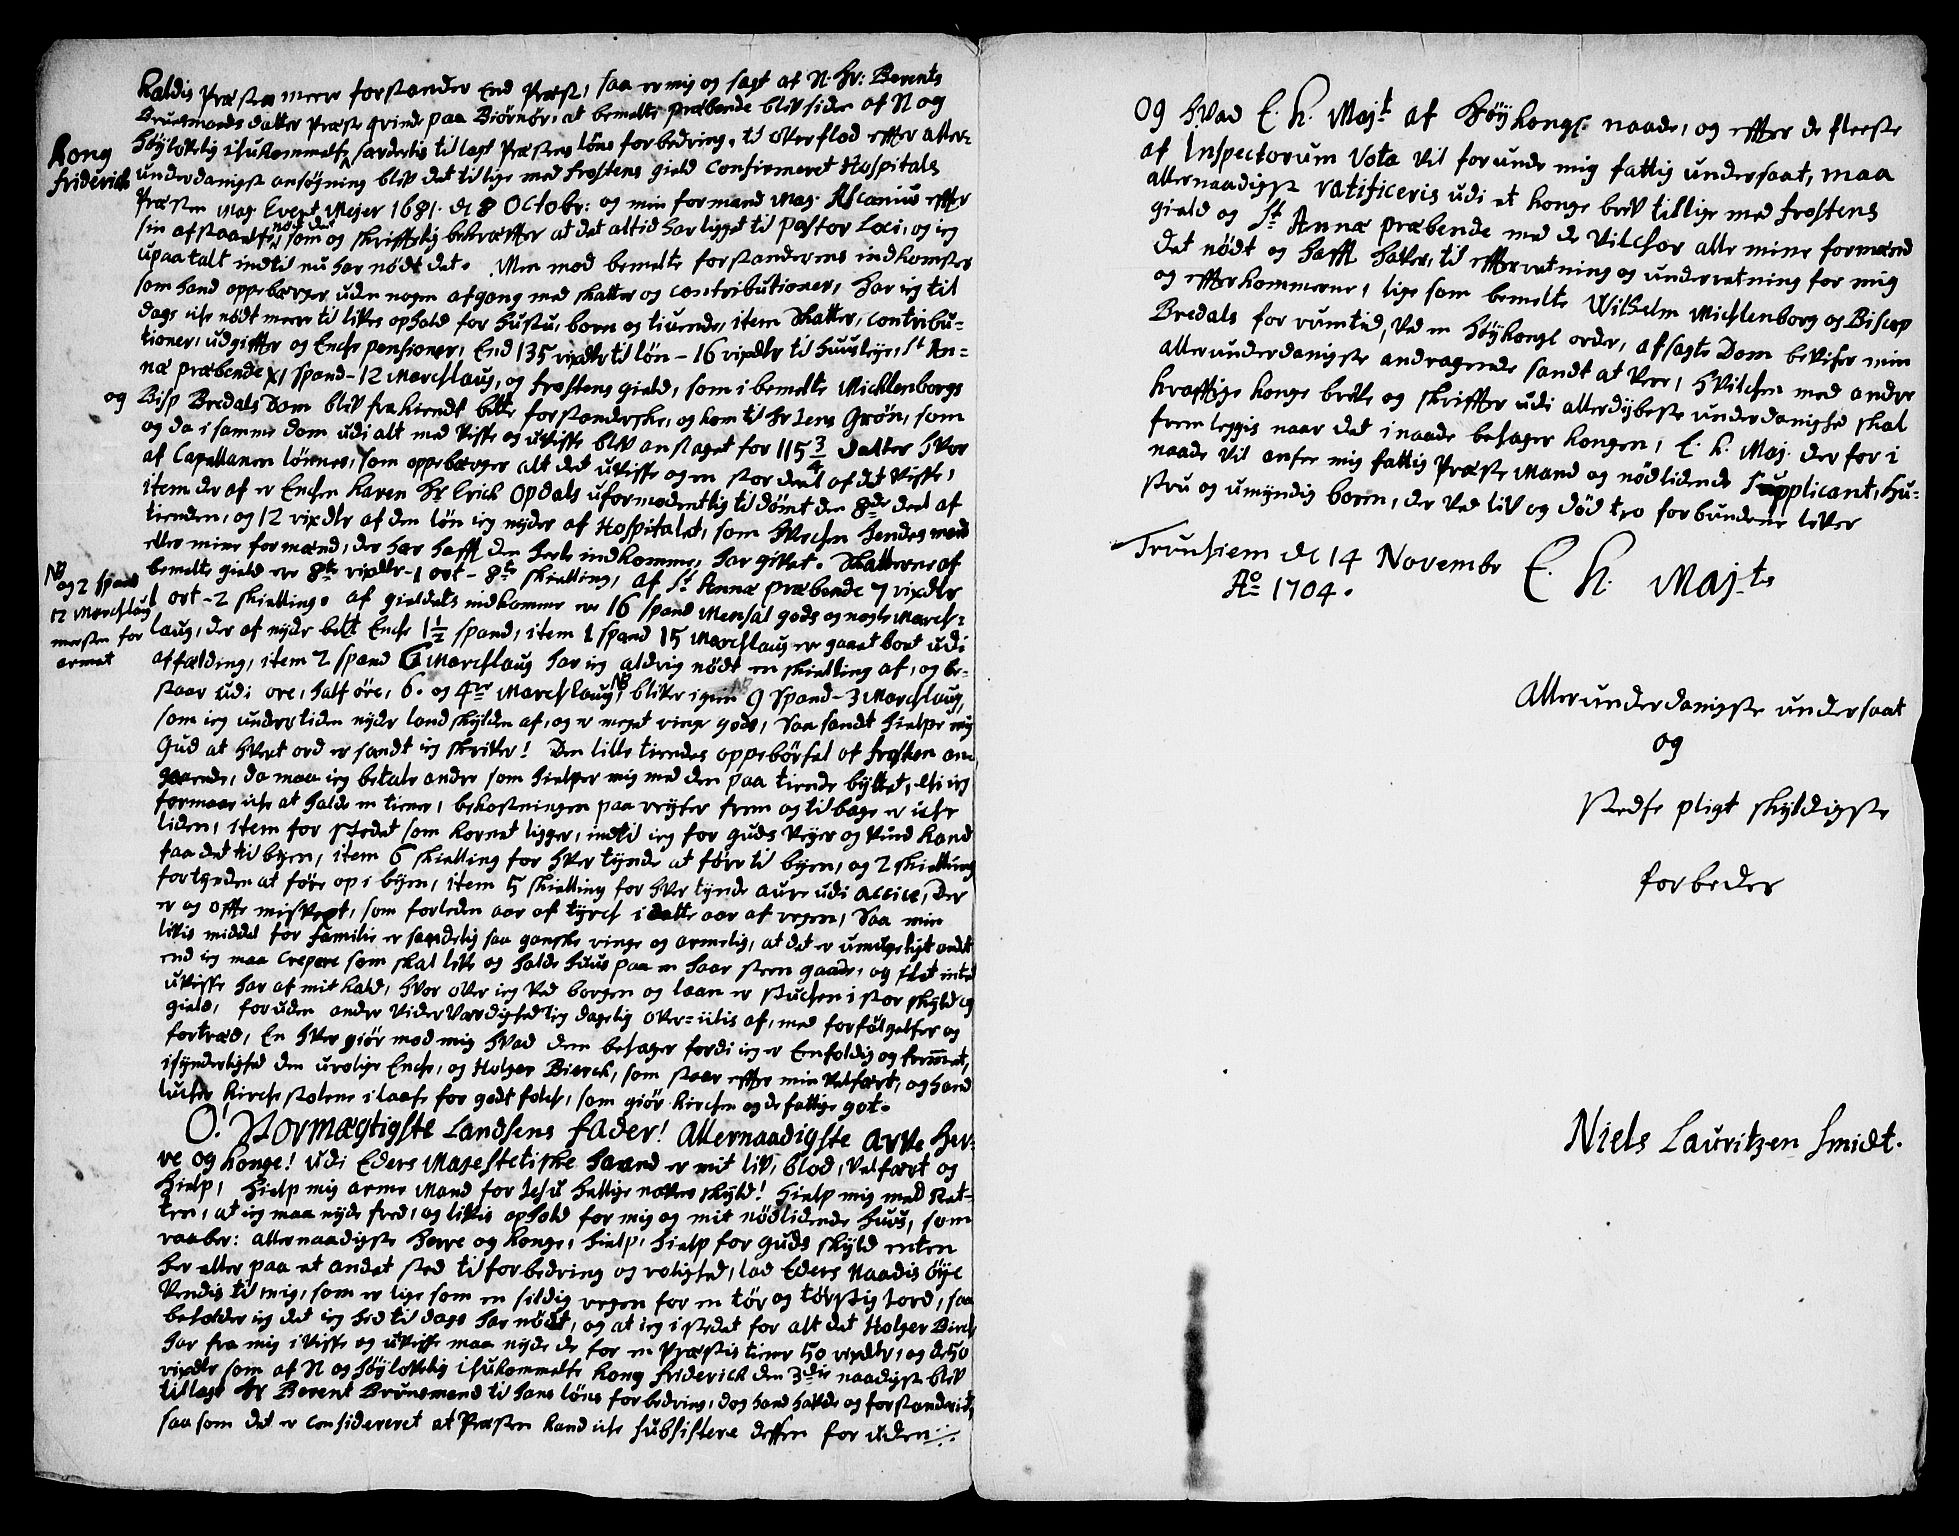 kaldis Præsten meere forstander End Præst, saa er mig og sagt af N. Hr: Berents
Brunsmands datter Præste qvinde paa Biørnør, at bemelte præbende blev siden af N og
høylovlig ihukommelse særdelis tillagt Præstens løns forbedring, til overflod effter aller-
Kong
friderich
underdanigst ansøgning blev det tillige med frostens gield Confirmeret Hospitals
Præsten Mag. Evert Mejer 1681. d 8 Octobr: og min formand Mag. Ascanius effter
sin afstaaelse som og skrifftelig bekræffter at det altid har ligget til Pastor Loci, og ieg
upaatalt indtil nu har nødt det. Men mod bemelte forstanderens indkomster
som hand oppebærger uden nogen afgang med skatter og contributioner, har ieg til
dags iche nødt meere til livs ophold for hustru, børn og tiuende, item skatter, contribu-
tioner, udgiffter og Enche pensioner, End 135 rixdlr til løn - 16 rixdlr til huusleye, St An-
næ præbende 1 spand - 12 Marchlaug, og frostens gield, som i bemelte Michlenborgs
og
Bisp Bredals Dom blev frakiendt bemelte forstanderske, og kom til Hr Jens Grøn, som
og da i samme dom udi alt med visse og uvisse blev anslaget for 115 3/4 daller hvor
af Capellanen lønnes, som oppebærger alt det uvisse og en stor deel af det visse,
item der af er Enchen Karen Hr Erich Opdals uformodentlig tildømt den 8de deel af
tienden, og 12 rixdlr af den løn ieg nyder af Hospitalet, som hverchen hendes mand
eller mine formænd, der har hafft den heele indkomme, har givet. Skatterne af
bemelte gield ere 8te rixdlr - 1 ort - 8te skielling, af St Annæ præbende 7 rixdlr
1 ort - 2 skielling. af gieldets indkomme ere 16 spand Mensal gods og nogle March-
NB
og 2 spand
12 Marchlaug
meesten for
armet
laug, der af nyder bete Enche 1 1/2 spand, item 1 spand 15 Marchlaug er gaaet bort udi
affælding, item 2 spand 6 Marchlaug har ieg aldrig nødt en skielling af, og be-
staar udi øre, half øre, 6. og 4re Marchlaug NB, bliver igien 9 Spand - 3 Marchlaug,
som ieg understiden nyder landskylden af, og er meget ringe gods, Saa sandt hielpe mig
Gud at hvert ord er sandt ieg skriver! Den lille tiendes oppebørsel af frosten an-
gaaende, da maa ieg betale andre som hielper mig med den paa tiende byttet, thi ieg
formaar iche at holde en tiener, bekostningen paa reyser frem og tilbage er iche
liden, item for stedet som kornet ligger, indtil ieg for guds veyer og vind kand
faa det til byen, item 6 skielling for hver tynde at føre til byen, og 2 skielling
for tynden at føre op i byen, item 5 skielling for hver tynde aure udi accise, Der
er og offte misvext, som forleden aar af tyrch i dette aar af regen, Saa min
livis middel for familie er sandelig saa ganske ringe og armelig, at det er umueligt andt
end ieg maa crepere som skal leve og holde huus paa en haar steen gaade, og slet intet
uvisse har af mit kald, hvor over ieg ved borgen og laan er stuchen i stor skyld og
gield, foruden anden Viderværdighed ieg dagelig over-iilis af, med forfølgelser og
fortræd, En hver giør mod mig hvad dem behager fordi ieg er Eenfoldig og fremmet,
isynderlighed den urolige Enche, og Holger Bierch, som staar effter min velfært, og hand
lucher Kirche stolene i laase for godt folch, som giør kirchen og de fattige got.
O! Stormægtigste Landsens Fader! Allernaadigste Arve Her-
re og Konge! udi Eders Majestetiske haand er mit liv, blod, velfært og
hielp, hielp mig arme Mand for Jesu hellige navns skyld! hielp mig med Ret-
ten, at ieg maa nyde fred, og livis ophold for mig og mit nødlidende huus, som
raaber: allernaadigste Herre og Konge, hielp, hielp for guds skyld enten
her eller paa et andet sted til forbedring og rolighed, lad Eders Naadis øye
vendis til mig, som er lige som en sildig regen for en tør og tørstig Jord, saa
beholder ieg det ieg hid til dags har nødt, og at ieg i stedet for alt det Holger Bierch
har fra mig i visse og uvisse maa nyde de for en Præstis tiener 50 rixdlr, og de 50
rixdlr som af N og høylovlig ihukommelse Kong Friderich den 3die naadigst blev
tillagt Hr Berent Brunsmand til hans løns forbedring, dog hand havde og forstanderiet,
saa som det er considereret at Præsten kand iche subsistere dessen foruden
Og hvad E. K. Majt af Høy Kongl. naade, og effter de fleeste
af Inspectorum Vota vil forunde mig fattig undersaat, maa
allernaadigst ratificeris udi et Konge brev tillige med frostens
gield og St Annæ præbende med de vilchor alle mine formænd
det nødt og hafft haver, til effterretning og underretning for mig
og effterkommerne, lige som bemelte Wilhelm Michlenborg og Biscop
Bredals for rumtid, ved en høy kongl. order, afsagte Dom beviser min
allerunderdanigste andragende sandt at vere, hvilchen med andre
kræfftige Konge breve og skriffter udi allerdybeste underdanighed skal
frem leggis naar det i naade behager Kongen, E. K. Maj. der for i
naade vil ansee mig fattig Præste Mand og nødlidende Supplicant, hu-
stru og umyndig børn, der ved liv og død tro forbundene lever
Trunhiem d 14 Novembr
Ao 1704.
E. K. Majts
Allerunderdanigste undersaat
og
stedse pligt skyldigste
forbeder
Niels Lauritzen Smidt.